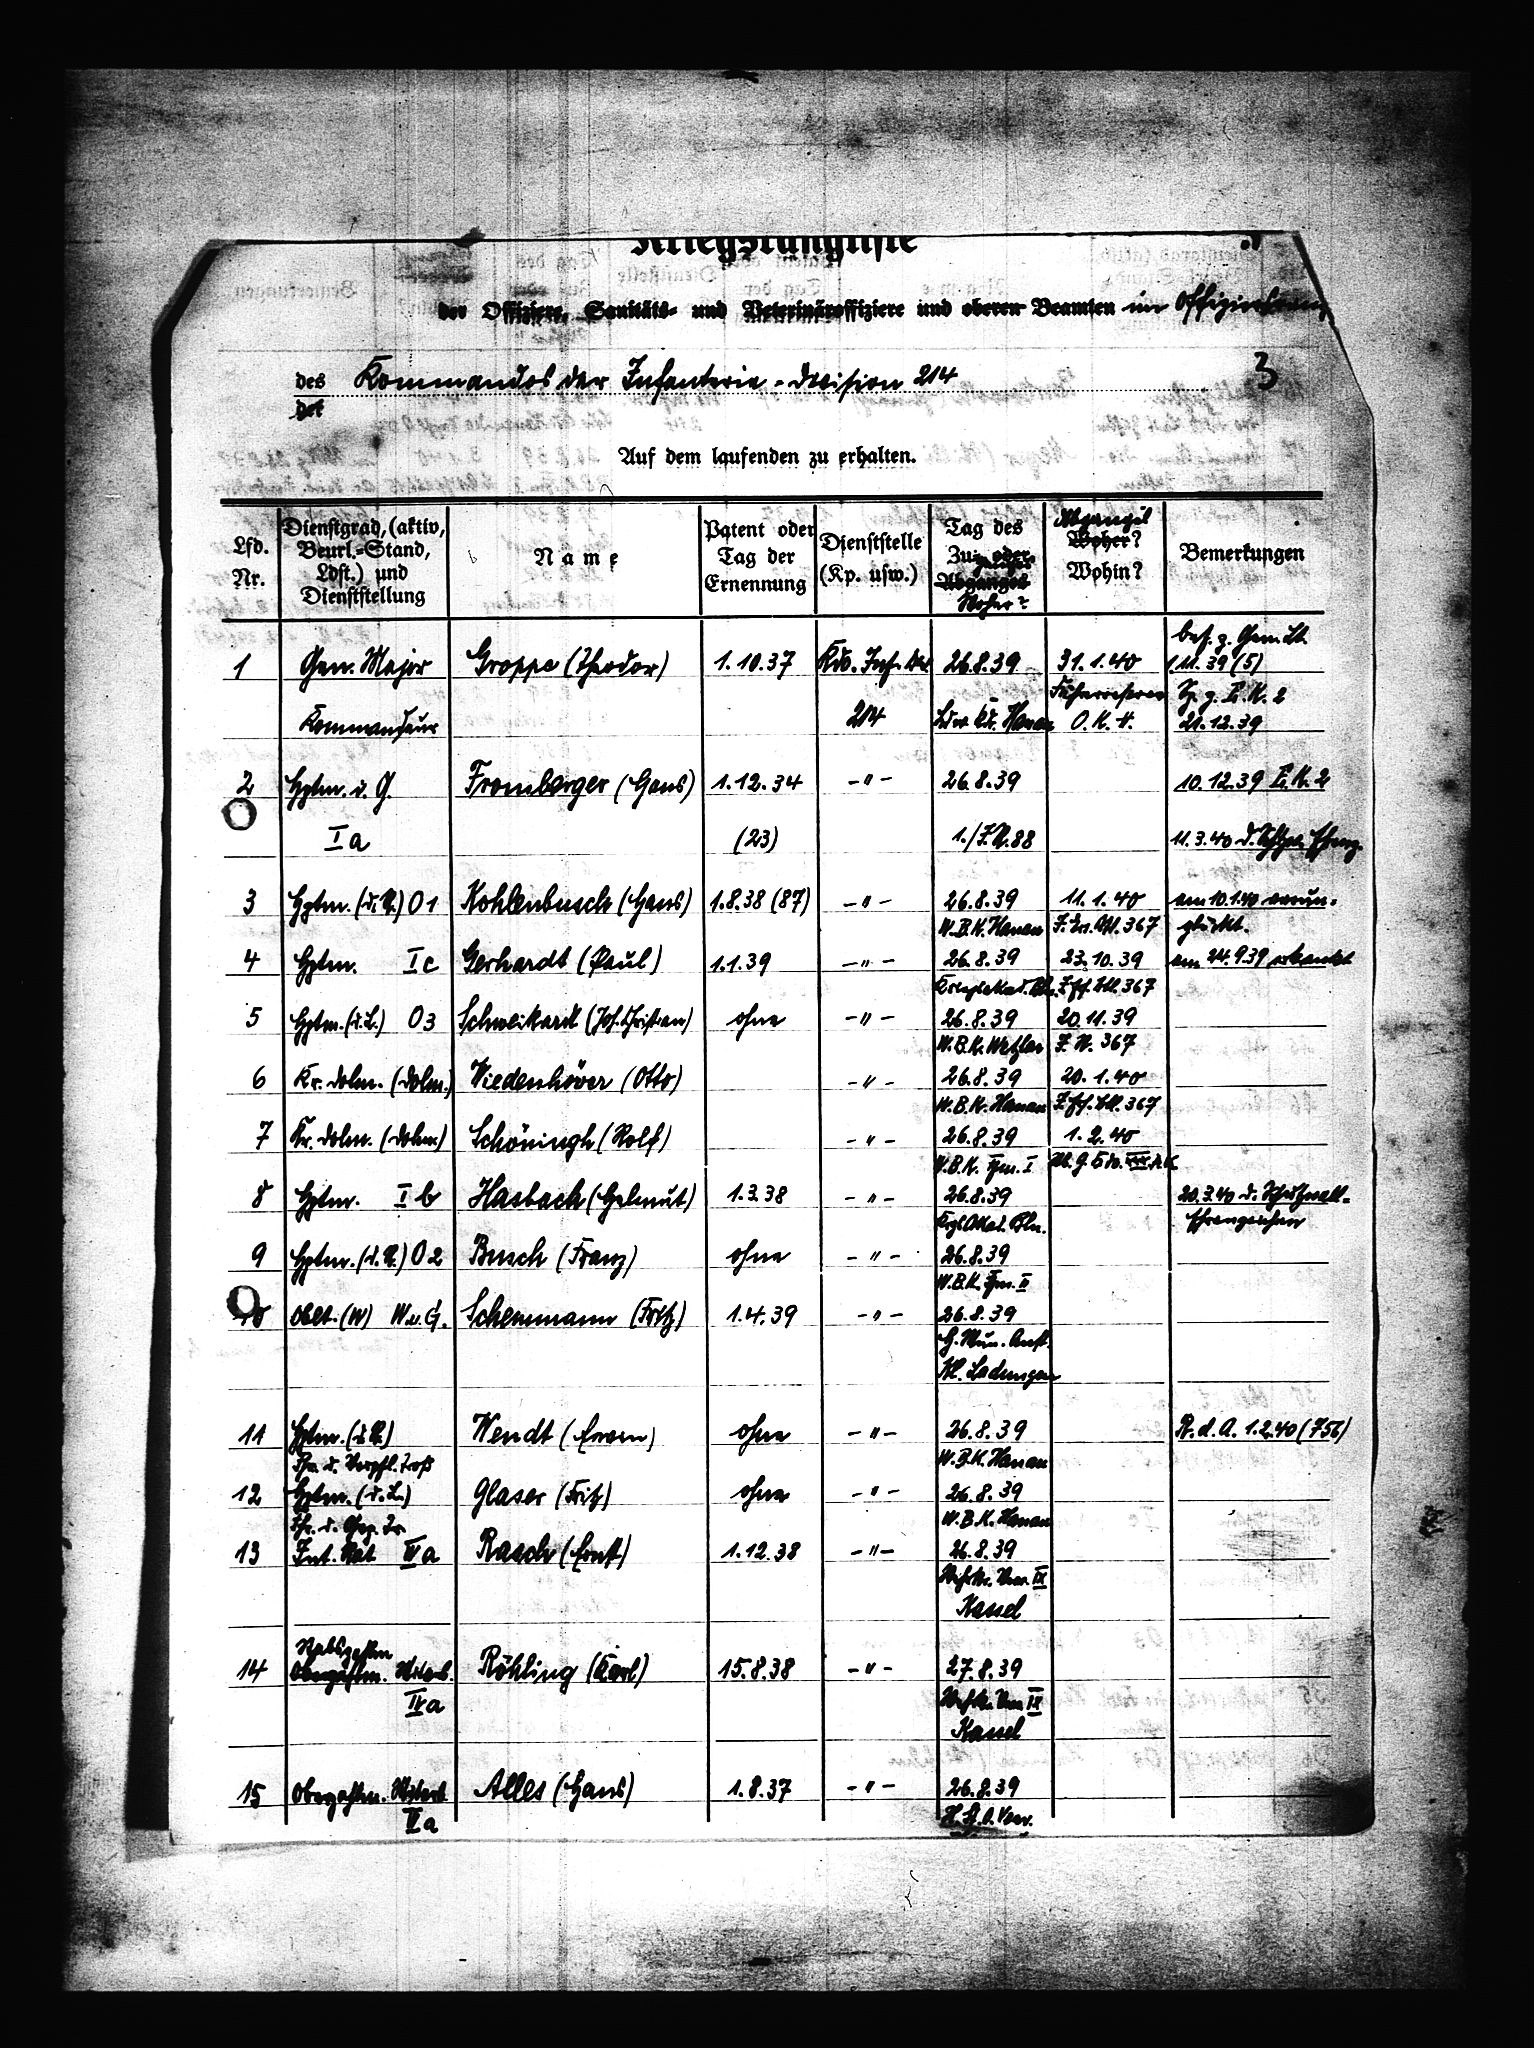 Kriegsrangliste
der Offiziere, Sanitäts- und Veterinäroffiziere und oberen Beamten im Offiziersrang
des Kommandos der Infanterie-Division 214 3
der
Auf dem laufenden zu erhalten.
Lfd. Nr. Dienstgrad, (aktiv, Beurl.-Stand, Ldst.) und Dienststellung Name Patent oder Tag der Ernennung Dienststelle (Kp. usw.) Tag des Zu- oder Zuganges Abganges Woher? Abgang Woher? Wohin? Bemerkungen
bef. z. Gen. Lt.
1 Gen. Major Groppe (Theodor) 1.10.37 Kdo. Inf. Div. 26.8.39 31.1.40 1.11.39 (5)
Führerreserve Sp. z. E.K. 2
Kommandeur 214 Ldw. Kdr. Hanau O.K.H. 21.12.39
2 Hptm. i. G. Fromberger (Hans) 1.12.34 -"- 26.8.39 10.12.39 E.K. 2
Ia (23) 1./I.R. 88 11.3.40
3 Hptm. (d.R.) O1 Kohlenbusch (Hans) 1.8.38 (87) -"- 26.8.39 11.1.40 am 10.1.40 verun-
W.B.K. Hanau 367 glückt.
4 Hptm. Ic Gerhardt (Paul) 1.1.39 -"- 26.8.39 23.10.39 am 24.9.39 erkrankt
367
5 Hptm. (d.L.) O3 Schweikardt (Joh. Christian) ohne -"- 26.8.39 20.11.39
W.B.K. Wetzlar I.R. 367
6 Kr. Dolm. (Dolm.) Wiedenhöver (Otto) -"- 26.8.39 20.1.40
W.B.K. Hanau 367
7 Kr. Dolm. (Dolm.) Schöningh (Rolf) -"- 26.8.39 1.2.40
W.B.K. Ffm. I
8 Hptm. Ib Hasbach (Helmut) 1.3.38 -"- 26.8.39 20.3.40 d. Schutzwall-
Krgs. Akad. Bln. Ehrenzeichen
9 Hptm. (d.R.) O2 Busch (Franz) ohne -"- 26.8.39
W.B.K. Ffm. II
10 Oblt. (W) W.u.G. Schemmann (Fritz) 1.4.39 -"- 26.8.39
H. Mun. Anst.
11 Hptm. (d.R.) Wendt (Erwin) ohne -"- 26.8.39 R.d.A. 1.2.40 (756)
Fhr. d. Verpfl. Troß W.B.K. Hanau
12 Hptm. (d.L.) Glaser (Fritz) ohne -"- 26.8.39
Fhr. d. Gep. Tr. W.B.K. Hanau
13 Int. Rat IVa Rasch (Ernst) 1.12.38 -"- 26.8.39
Wehrkr. Verw. IX
Kassel
Stabszahlm.
14 Oberzahlm. Röhling (Karl) 15.8.38 -"- 27.8.39
IVa Wehrkr. Verw. IX
Kassel
15 Oberzahlm. Alles (Hans) 1.8.37 -"- 26.8.39
IVa H.St.O. Verw.